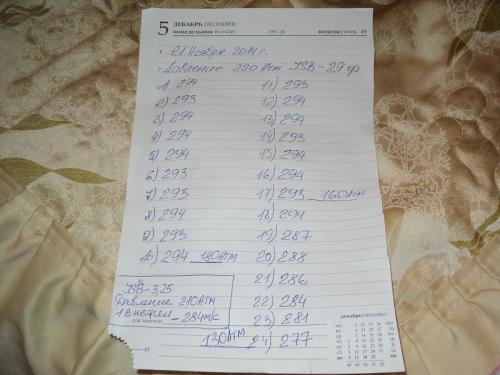 5 ДЕКАБРЬ DECEMBER
понедельник monday 339 - 26 неделя | week 49
21 Ноября 2014 г.
Давление 220 Атм JSB-29 гр
1) 294
2) 293
3) 294
4) 294
5) 294
6) 293
7) 293
8) 294
9) 293
10) 294 180АТМ
11) 293
12) 294
13) 294
14) 293
15) 294
16) 294
17) 293 160АТМ
18) 294
19) 287
20) 288
21) 286
22) 284
23) 281
24) 277
130АТМ
JSB-325
Давление 210Атм
- 284м/с
для заметок
49
декабрь | december